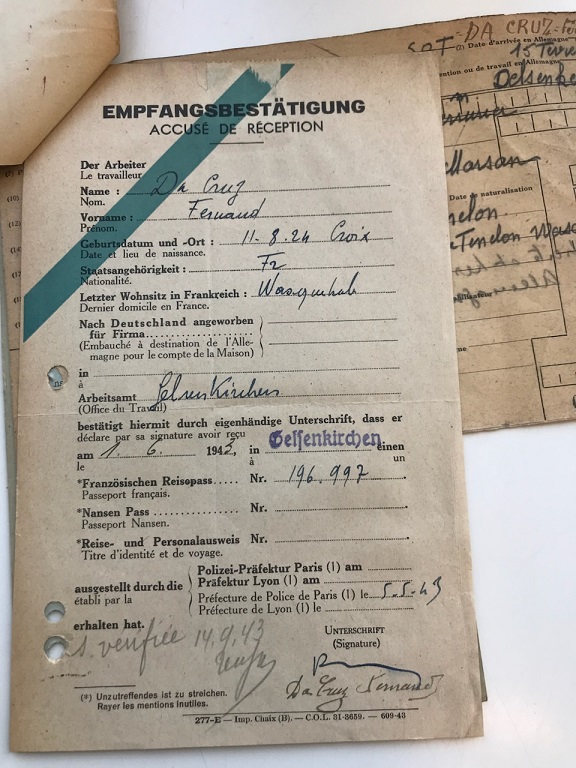 EMPFANGSBESTÄTIGUNG
ACCUSÉ DE RÉCEPTION
Der Arbeiter
Le travailleur
Name : Da Cruz
Nom.
Vorname : Fernand
Prénom.
Geburtsdatum und -Ort : 11-8-24 Croix
Date et lieu de naissance.
Staatsangehörigkeit : Fr
Nationalité.
Letzter Wohnsitz in Frankreich : Wasquehal
Dernier domicile en France.
Nach Deutschland angeworben
für Firma
(Embauché à destination de l'Alle-
magne pour le compte de la Maison)
in
à
Arbeitsamt Gelsenkirchen
(Office du Travail)
bestätigt hiermit durch eigenhändige Unterschrift, dass er
déclare par sa signature avoir reçu
am 1. 6. 1943, in Gelsenkirchen einen
le à un
*Französischen Reisepass Nr. 196.997
Passeport français.
*Nansen Pass Nr.
Passeport Nansen.
*Reise- und Personalausweis Nr.
Titre d'identité et de voyage.
ausgestellt durch die
établi par la
Polizei-Präfektur Paris (1) am
Präfektur Lyon (1) am
Préfecture de Police de Paris (1) le 5.5.43
Préfecture de Lyon (1) le
erhalten hat.
verifiée 14.9.43
UNTERSCHRIFT
(Signature)
Da Cruz Fernand
(*) Unzutreffendes ist zu streichen.
Rayer les mentions inutiles.
277-E — Imp. Chaix (B). — C.O.L. 31-3659. — 609-43
DA CRUZ
Date d'arrivée en Allemagne
15
ention ou de travail en Allemagne
Marsan
Date de naturalisation